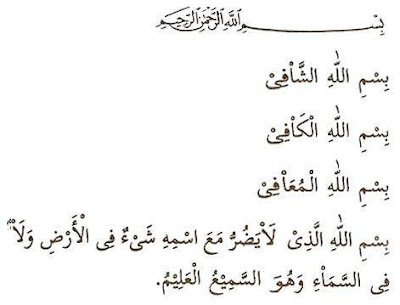 بِسْــــــمِ اللَّهِ الرَّحْمَنِ الرَّحِيمِ
بِسْمِ اللّٰهِ الشَّاْفِىْ
بِسْمِ اللّٰهِ الْكَاْفِىْ
بِسْمِ اللّٰهِ الْمُعَاْفِىْ
بِسْمِ اللّٰهِ الَّذِىْ لَاْيَضُرُّ مَعَ اسْمِهِ شَىْءٌ فِى الْأَرْضِ وَلَاْ
فِى السَّمَاْءِ وَهُوَ السَّمِيْعُ الْعَلِيْمُ.